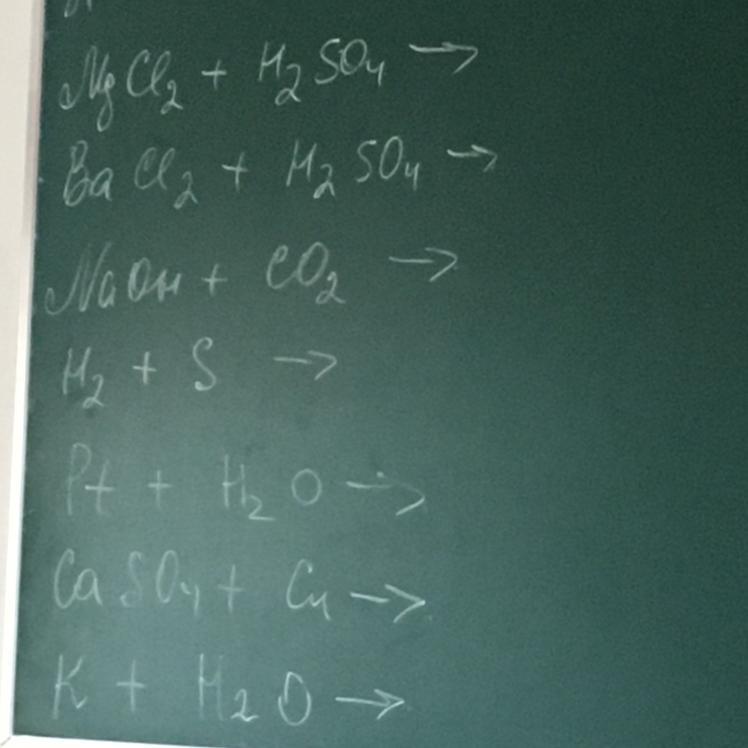 MgCl₂ + H₂SO₄ →
BaCl₂ + H₂SO₄ →
NaOH + CO₂ →
H₂ + S →
Pt + H₂O →
CaSO₄ + Cu →
K + H₂O →